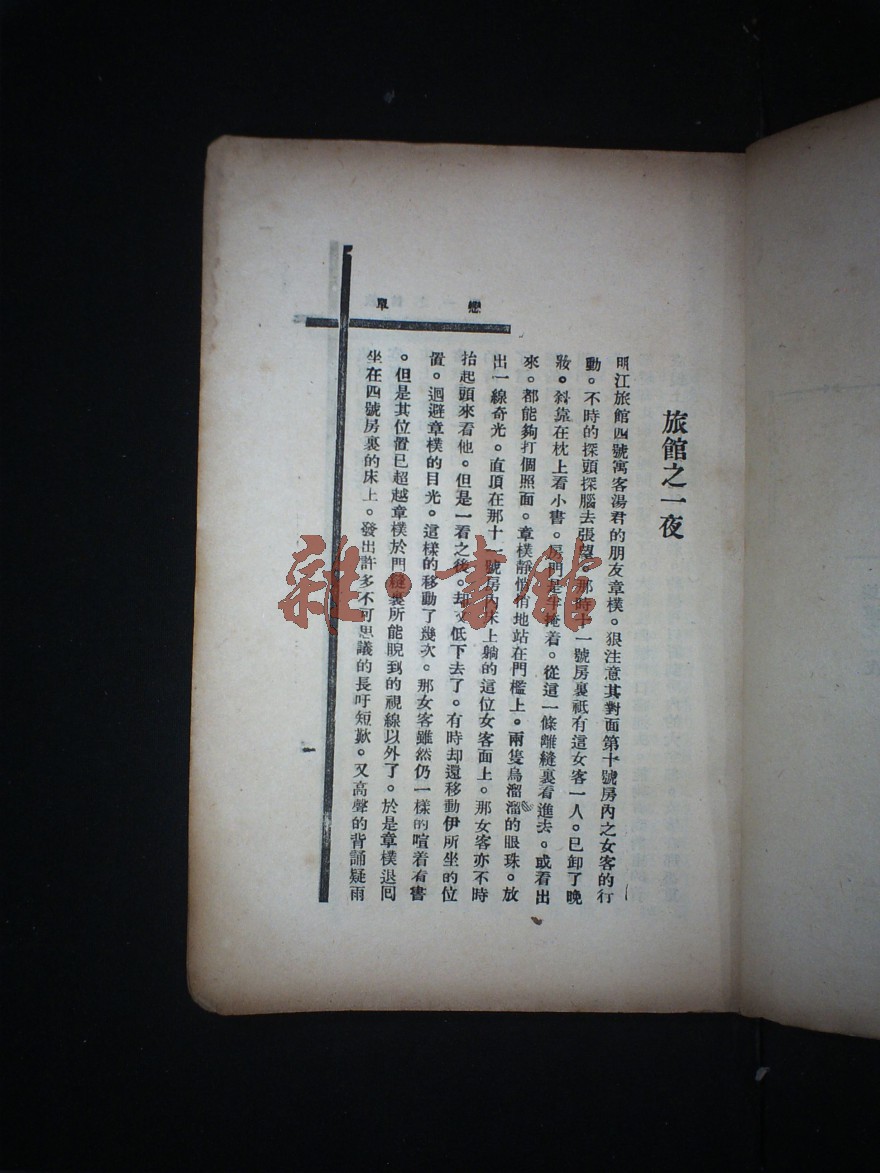 戀單
旅館之一夜
明江旅館四號寓客湯君的朋友章樸。狠注意其對面第十號房內之女客的行
動。不時的探頭探腦去張望。那時十一號房裏祇有這女客一人。已卸了晚
妝。斜靠在枕上看小書。房門是半掩着。從這一條離縫裏看進去。或看出
來。都能夠打個照面。章樸靜悄悄地站在門檻上。兩隻烏溜溜的眼珠。放
出一線奇光。直頂在那十一號房內床上躺的這位女客面上。那女客亦不時
抬起頭來看他。但是一看之後。却又低下去了。有時却還移動伊所坐的位
置。迴避章樸的目光。這樣的移動了幾次。那女客雖然仍一樣的喧着看書
。但是其位置已超越章樸於門縫裏所能睨到的視線以外了。於是章樸退囘
坐在四號房裏的床上。發出許多不可思議的長吁短歎。又高聲的背誦疑雨
一
雜·書館